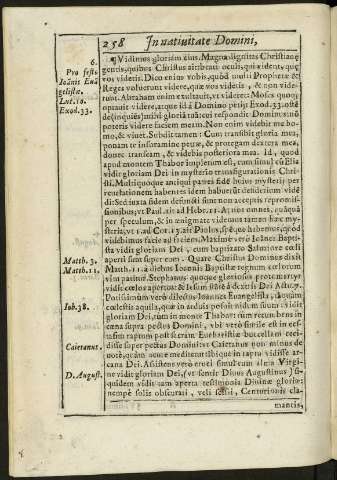 258 In natiuitate Domini,
6.
Pro festo
Ioānis Euā
gelistæ.
Luc. 10.
Exod. 33.
Vidimus gloriam eius. Magna dignitas Christianæ
gentis, quibus Christus attribuit oculi, qui
vos videtis. Dico enim vobis, quod multi Prophetæ &
Reges voluerunt videre, quæ vos videtis, & non vide-
runt. Abraham enim exultauit, vt videret: Moses quoq;
optauit videre, atque id à Domino petijt Exod. 33. ostē
de (inquiēs) mihi gloriā tuā: cui respondit Dominus: nō
poteris videre faciem meam. Non enim videbit me ho-
mo, & viuet. Subdit tamen: Cum transibit gloria mea,
ponam te in foramine petræ, & protegam dextera mea,
donec transeam, & videbis posteriora mea. Id, quod
apud montem Thabor impletum est, cum simul cū Elia
vidit gloriam Dei in mysterio transfigurationis Chri-
sti. Multi quoque antiqui patres fide huius mysterij per
reuelationem habentes idem habuerūt desiderium vidē
di: Sed iuxta fidem defuncti sunt non acceptis repromis-
sionibus, vt Paul. ait ad Hebr. 11. At nos omnes, quāquā
per speculum, & in ænigmate videamus tamen hæc my-
steria, vt 1. ad Cor. 13. ait Paulus, spē habemus, quod eū
videbimus facie ad faciem. Maximè verò Ioānes Bapti-
sta vidit gloriam Dei, cum baptizato Saluatore cœli
aperti sunt super eum. Quare Christus Dominus dixit
Matth. 3.
Matth. 11.
Matth. 11. à diebus Ioannis Baptistæ regnum cœlorum
vim patitur. Stephanus quoque gloriosus protomartyr
vidit cœlos apertos: & Iesum stātē à dextris Dei Act. 7.
Potissimum verò dilectus Ioannes Euangelista, tāquam
Iob. 38.
cœlestis aquila, quæ in arduis posuit nidum suum vidit
gloriam Dei, tum in monte Thabor: tum recumbens in
cæna supra pectus Domini, vbi verò simile est in ec-
stasim raptum post sacram Eucharistiæ buccellam ceci-
Caietanus.
disse super pectus Domini, vt Caietanus non minus de
uotè, quàm acutè meditatur: ibique in raptu vidisse arca-
na Dei. Assistens verò cruci simul cum alma Virgi-
D. August.
ne vidit gloriam Dei, (vt sentit Diuus Augustinus) si-
quidem vidit tam aperta testimonia Diuinæ gloriæ:
nempè solis obscurati, veli scissi, Centurionis cla-
mantis,